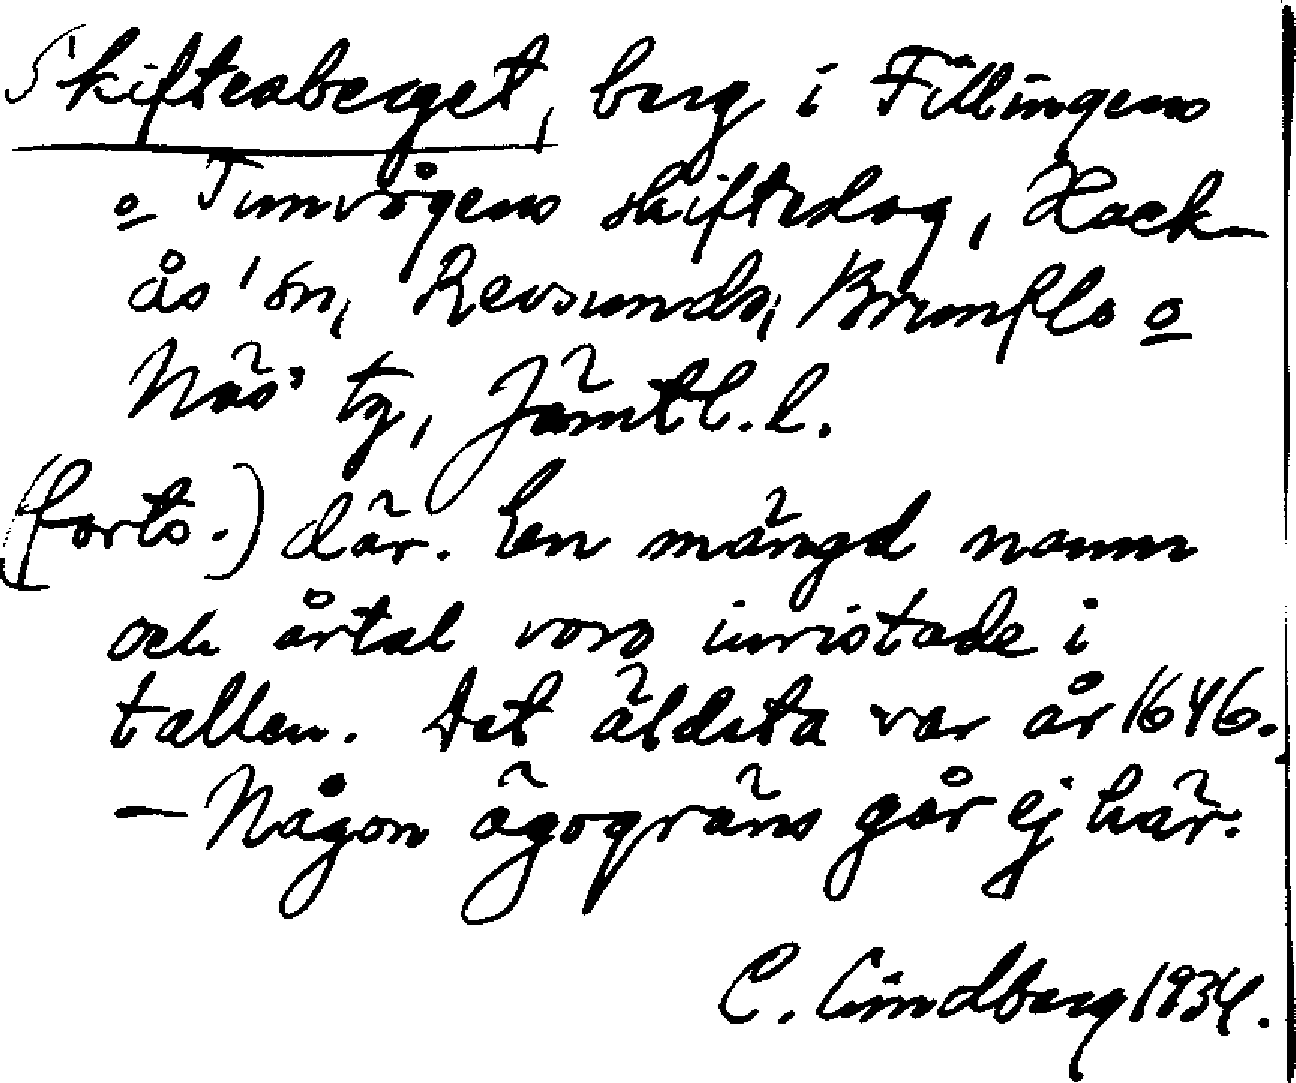 Skiftesberget, berg i Fillingens
o Tunvågens skifteslag, Hack-
ås sn, Revsunds, Brunflo o
Näs' tg, Jämtl. l.
(forts.) där. En mängd namn
och årtal voro inristade i
tallen. Det äldsta var år 1646.
— Någon ägogräns går ej här.
C. Lindberg 1934.